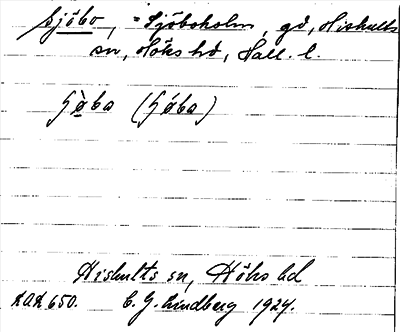 Sjöbo, = Sjöboholm, gd, Hishults
sn, Höks hd, Hall. l.
Hishults sn, Höks hd
650. E. G. Lindberg 1924.